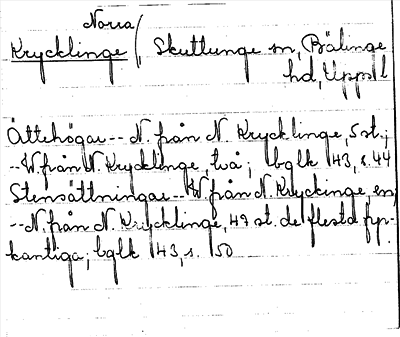 Norra
Krycklinge, Skuttunge sn, Bälinge
hd, Uppsl
Ättehögar -- N. från N. Krycklinge, 5 st.;
-- W. från N. Krycklinge, två; bglk 143, s. 44
Stensättningar -- W. från N. Krycklinge, en;
-- N. från N. Krycklinge, 49 st. de flesta fyr-
kantiga; bglk 143, s. 50